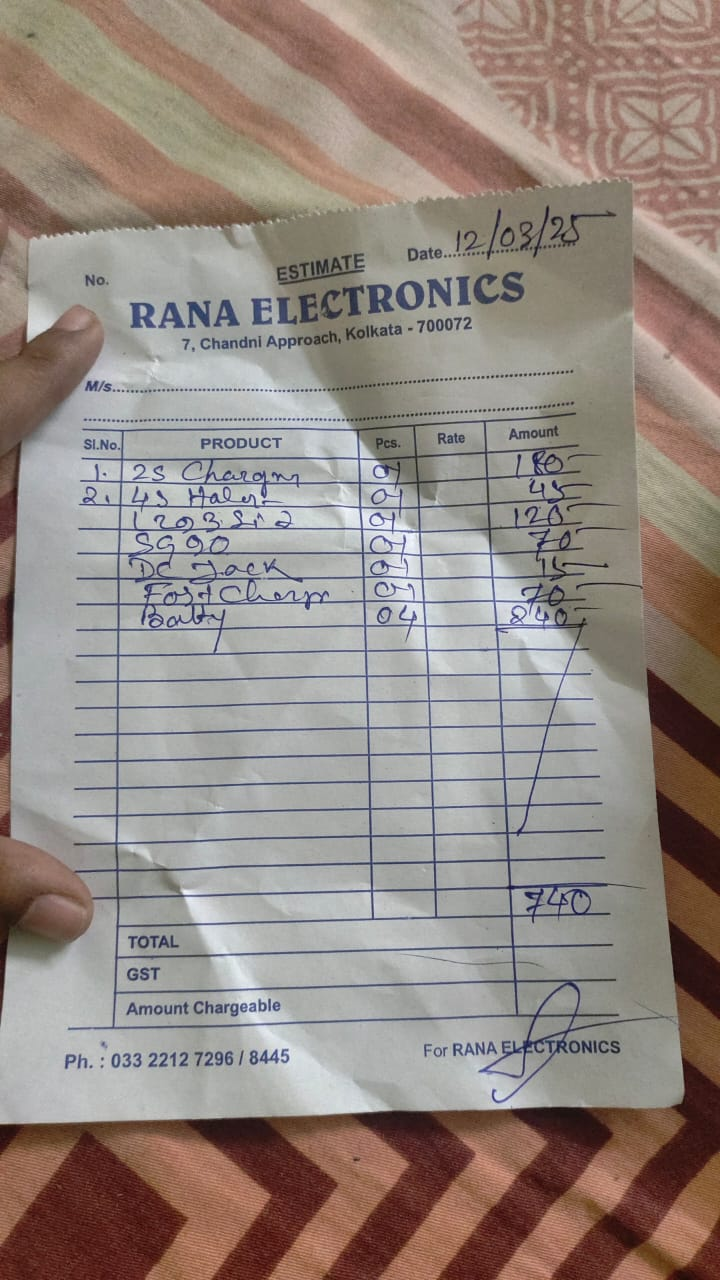 No.
ESTIMATE
Date 12/03/25
RANA ELECTRONICS
7, Chandni Approach, Kolkata - 700072
M/s.
Sl.No. PRODUCT Pcs. Rate Amount
1. 2S Charger 01 180
2. 4S 01 45
01 120
SG90 01 70
DC Jack 01 15
Fast 01 70
04 240
740
TOTAL
GST
Amount Chargeable
Ph. : 033 2212 7296 / 8445
For RANA ELECTRONICS